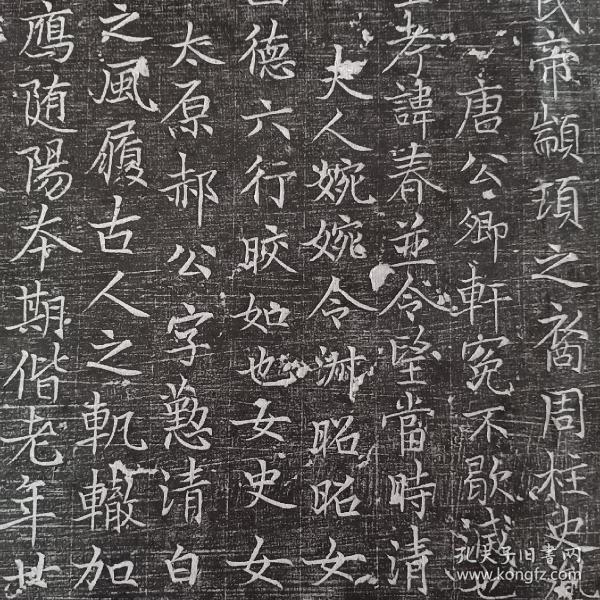 民帝顓頊之裔周柱史
唐公卿軒冕不歇
考諱春並令望當時清
夫人婉婉令淑昭昭女
德六行皎如也女史女
太原郝公字懃清白
之風履古人之軌轍加
鴈随陽本期偕老年廿
孔夫子旧書网
www.kongfz.com